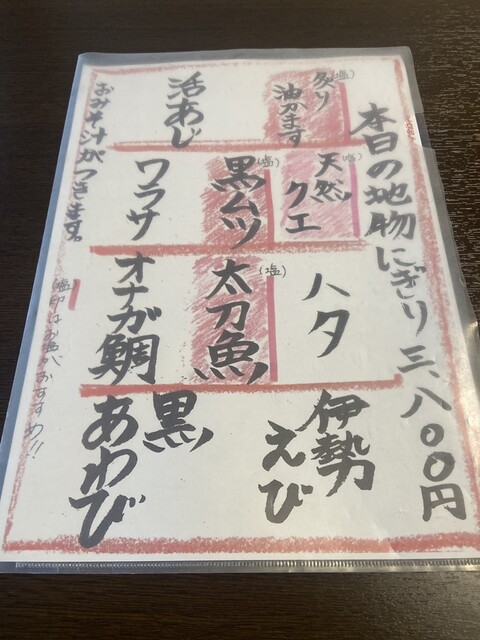 本日の地物にぎり 三、八〇〇円
(塩)
炙り
油カます
活あじ
(塩)
天然
クエ
(塩)
黒ムツ
ワラサ
ハタ
(塩)
太刀魚
オナガ鯛
伊勢
えび
黒
あわび
おみそ汁がつきます。
(塩)印はお塩がおすすめ!!